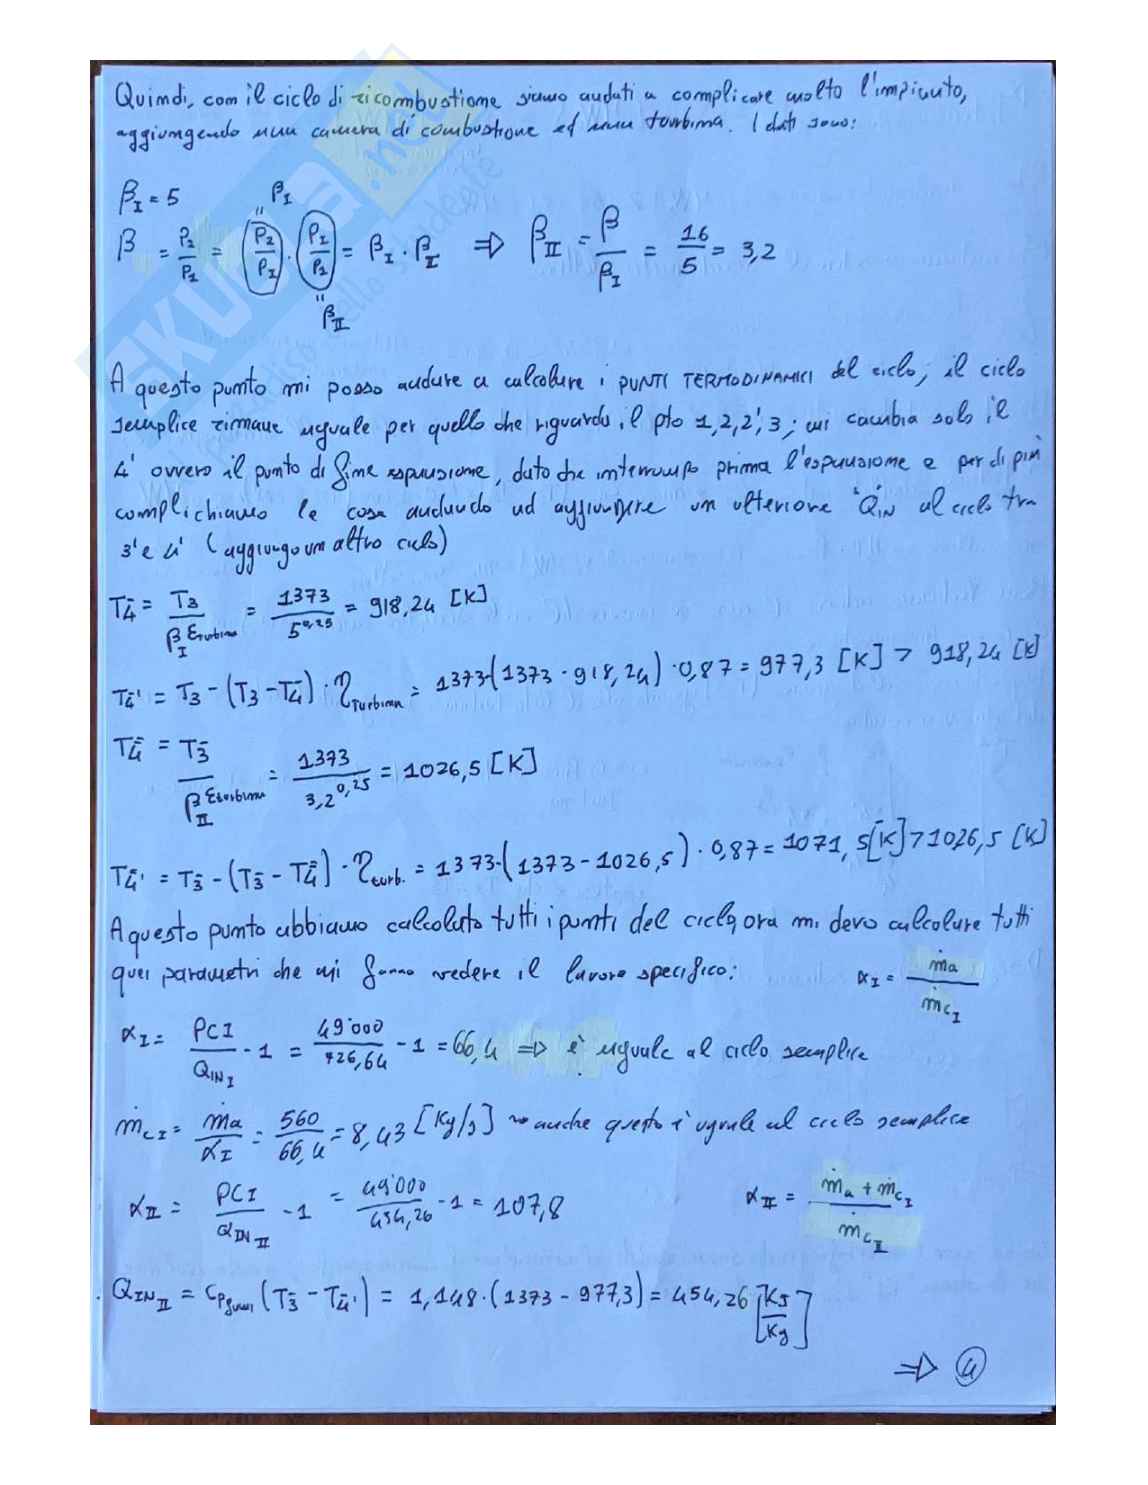 Quindi, con il ciclo di ricombustione siamo andati a complicare molto l'impianto,
aggiungendo una camera di combustione ed una turbina. I dati sono:
β_I = 5
β_I
β = P2/P1 = (P2/P_I)·(P_I/P1) = β_I · β_II ⇒ β_II = β/β_I = 16/5 = 3,2
β_II
A questo punto mi posso andare a calcolare i PUNTI TERMODINAMICI del ciclo; il ciclo
semplice rimane uguale per quello che riguarda il pto 1,2,2',3; mi cambia solo il
4' ovvero il punto di fine espansione, dato che interrompo prima l'espansione e per di più
complichiamo le cose andando ad aggiungere un ulteriore Q_IN al ciclo tra
3' e 4' (aggiungo un altro ciclo)
T4̄ = T3/β_I^εturbina = 1373/5^0,25 = 918,24 [K]
T4̄' = T3 - (T3 - T4̄) · η_Turbina = 1373-(1373 - 918,24) · 0,87 = 977,3 [K] > 918,24 [K]
T4̿ = T3̄/β_II^εturbina = 1373/3,2^0,25 = 1026,5 [K]
T4̿' = T3̄ - (T3̄ - T4̿) · η_turb. = 1373-(1373 - 1026,5) · 0,87 = 1071,5 [K] > 1026,5 [K]
A questo punto abbiamo calcolato tutti i punti del ciclo, ora mi devo calcolare tutti
quei parametri che mi fanno vedere il lavoro specifico: α_I = ṁa/ṁc_I
α_I = PCI/Q_IN_I - 1 = 49'000/726,64 - 1 = 66,4 ⇒ è uguale al ciclo semplice
ṁc_I = ṁa/α_I = 560/66,4 = 8,43 [Kg/s] ~ anche questo è uguale al ciclo semplice
α_II = PCI/Q_IN_II - 1 = 49'000/454,26 - 1 = 107,8 α_II = (ṁa + ṁc_I)/ṁc_II
Q_IN_II = cp_fumi (T3̄ - T4̄') = 1,148·(1373 - 977,3) = 454,26 [KJ/Kg]
⇒ 4